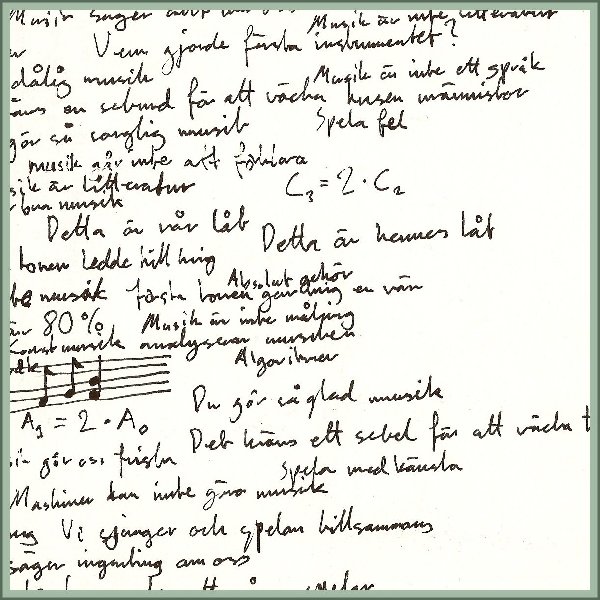 Musik säger allt
Musik är inte litteratur
Vem gjorde första instrumentet?
dålig musik
Musik är inte ett språk
en sekund för att väcka tusen människor
gör så sorglig musik
Spela fel
musik går inte att förklara
C₃ = 2 · C₂
ik är litteratur
bra musik
Detta är vår låt
Detta är hennes låt
tonen ledde till krig
Absolut gehör
te musik
första tonen gav mig en vän
är 80%
Musik är inte målning
Konstmusik
analyserar musiken
Algoritmer
Du gör så glad musik
A₁ = 2 · A₀
Det krävs ett sekel för att väcka t
gör oss friska
Spela med känsla
Maskiner kan inte göra musik
Vi sjunger och spelar tillsammans
säger ingenting om oss